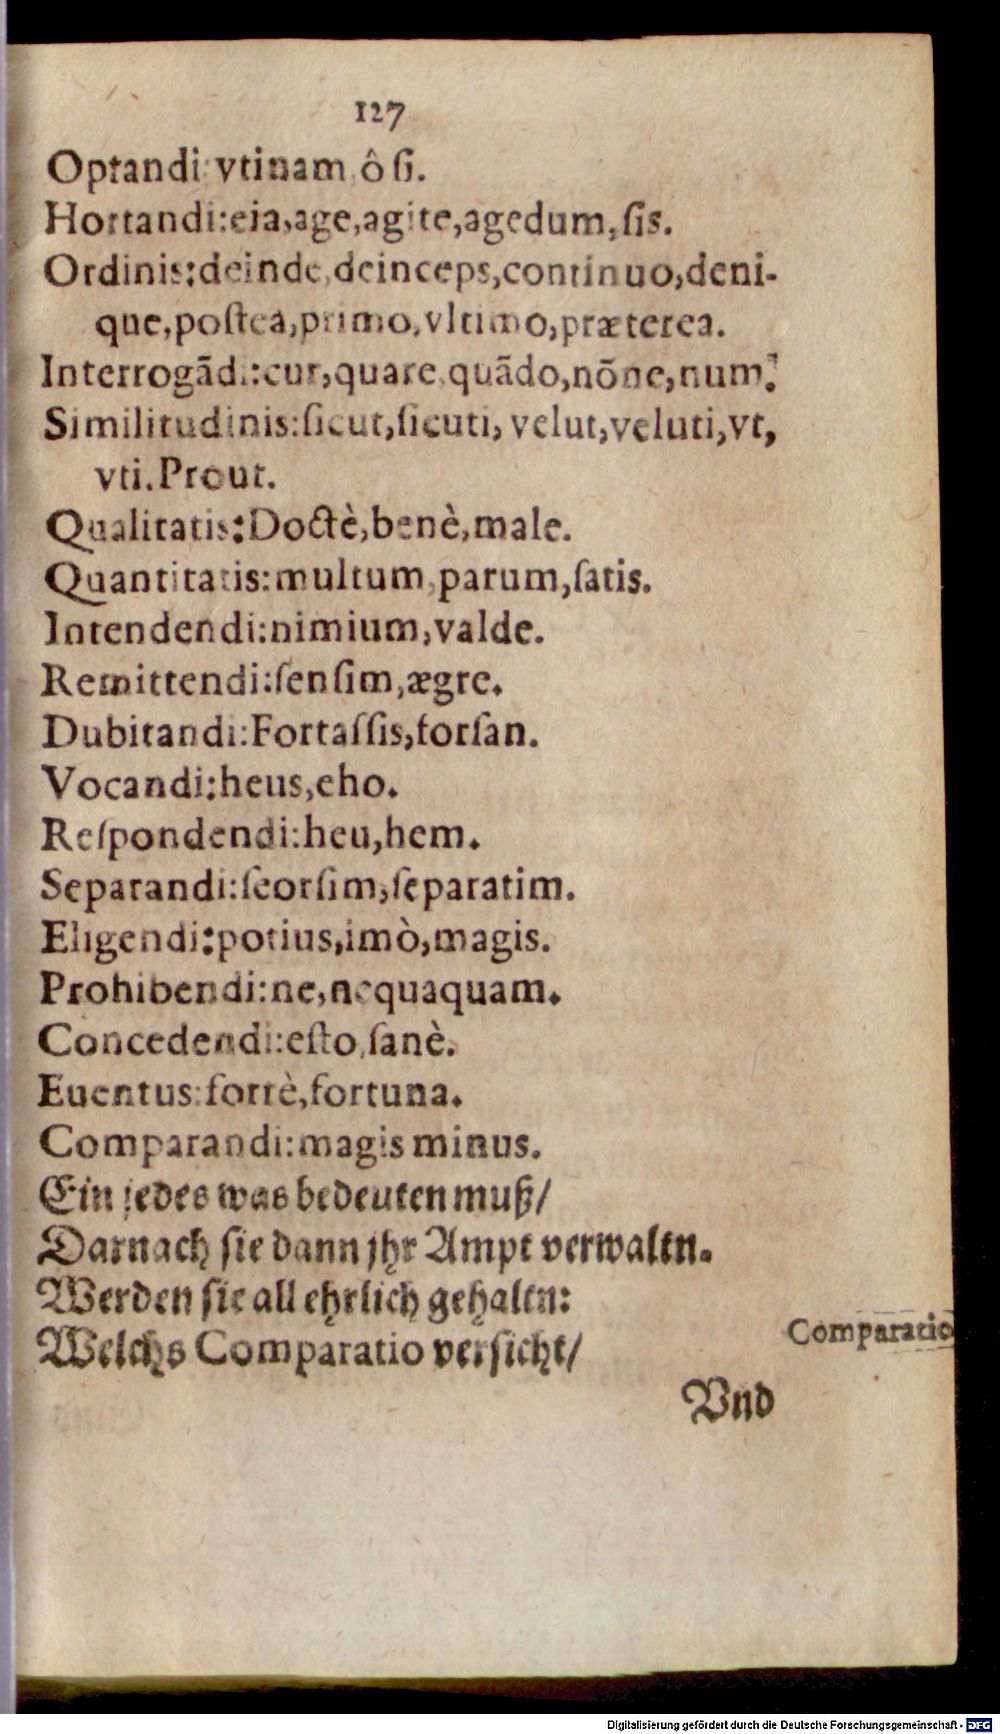 127
Optandi: vtinam, ô ſi.
Hortandi:eia,age,agite,agedum,ſis.
Ordinis:deinde,deinceps,continuo,deni-
que,poſtea,primo,vltimo,præterea.
Interrogãdi:cur,quare,quãdo,nõne,num?
Similitudinis:ſicut,ſicuti, velut,veluti,vt,
vti. Prout.
Qualitatis:Doctè,benè,male.
Quantitatis:multum,parum,ſatis.
Intendendi:nimium,valde.
Remittendi:ſenſim,ægre.
Dubitandi:Fortaſſis,forſan.
Vocandi:heus,eho.
Reſpondendi:heu,hem.
Separandi:ſeorſim,ſeparatim.
Eligendi:potius,imò,magis.
Prohibendi:ne,nequaquam.
Concedendi:eſto,ſanè.
Euentus:fortè,fortuna.
Comparandi:magis minus.
Ein jedes was bedeuten muß/
Darnach ſie dann jhr Ampt verwaltn.
Werden ſie all ehrlich gehaltn:
Welchs Comparatio verſicht/
Comparatio
Vnd
Digitalisierung gefördert durch die Deutsche Forschungsgemeinschaft - DFG